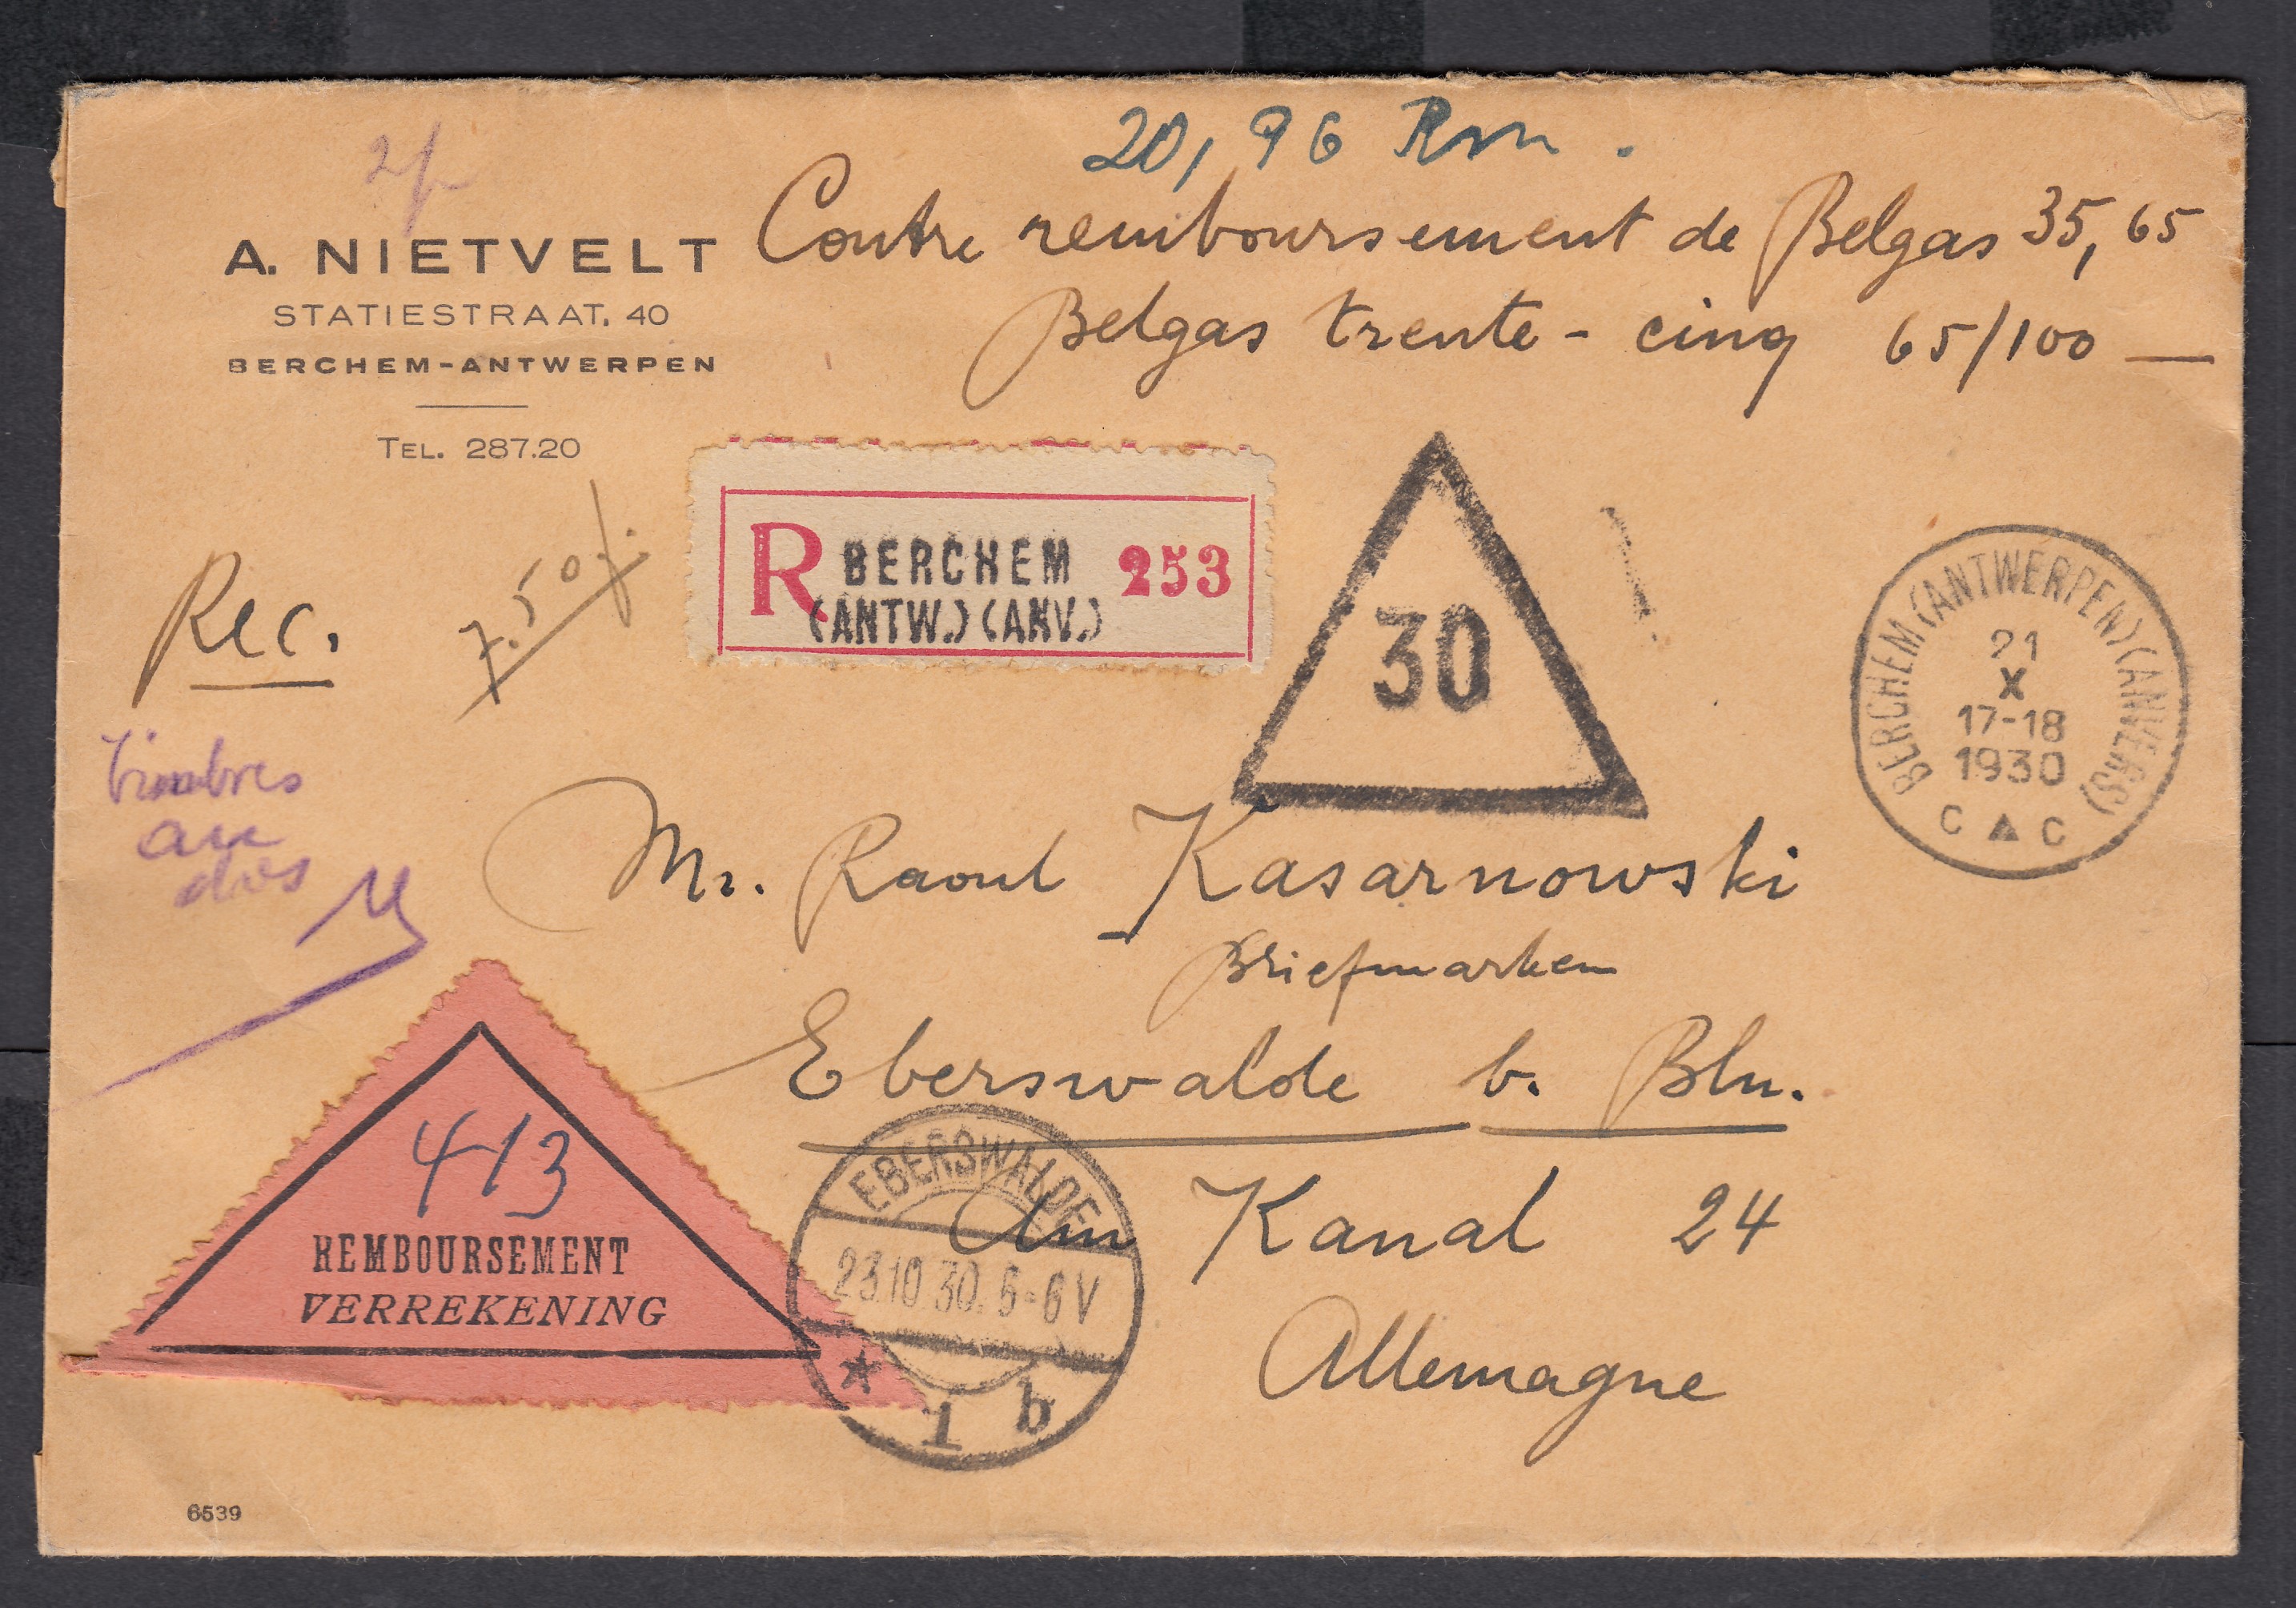 20,96 Rm.
Contre remboursement de Belgas 35,65
Belgas trente-cinq 65/100 —
A. NIETVELT
STATIESTRAAT, 40
BERCHEM-ANTWERPEN
TEL. 287.20
R BERCHEM 253
(ANTW.) (ANV.)
30
BERCHEM (ANTWERPEN) (ANVERS)
21
X
17-18
1930
C C
Rec.
7.50
timbres
au
dos
Mr. Raoul Kasarnowski
Briefmarken
Eberswalde b. Bln.
Am Kanal 24
Allemagne
413
REMBOURSEMENT
VERREKENING
EBERSWALDE
23.10.30. 5-6 V
* 1 b
6539